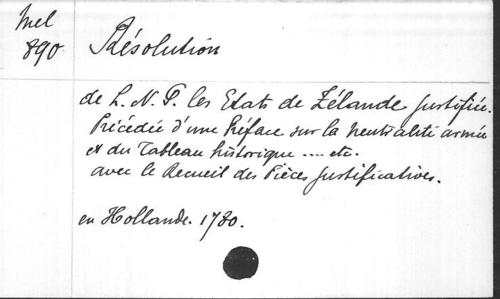 Mel
890
Résolution
de L. N. P. les Etats de Zélande justifiée.
Précédée d'une Préface sur la neutralité armée
et du Tableau historique .... etc.
avec le Recueil des Pièces justificatives.
en Hollande. 1780.